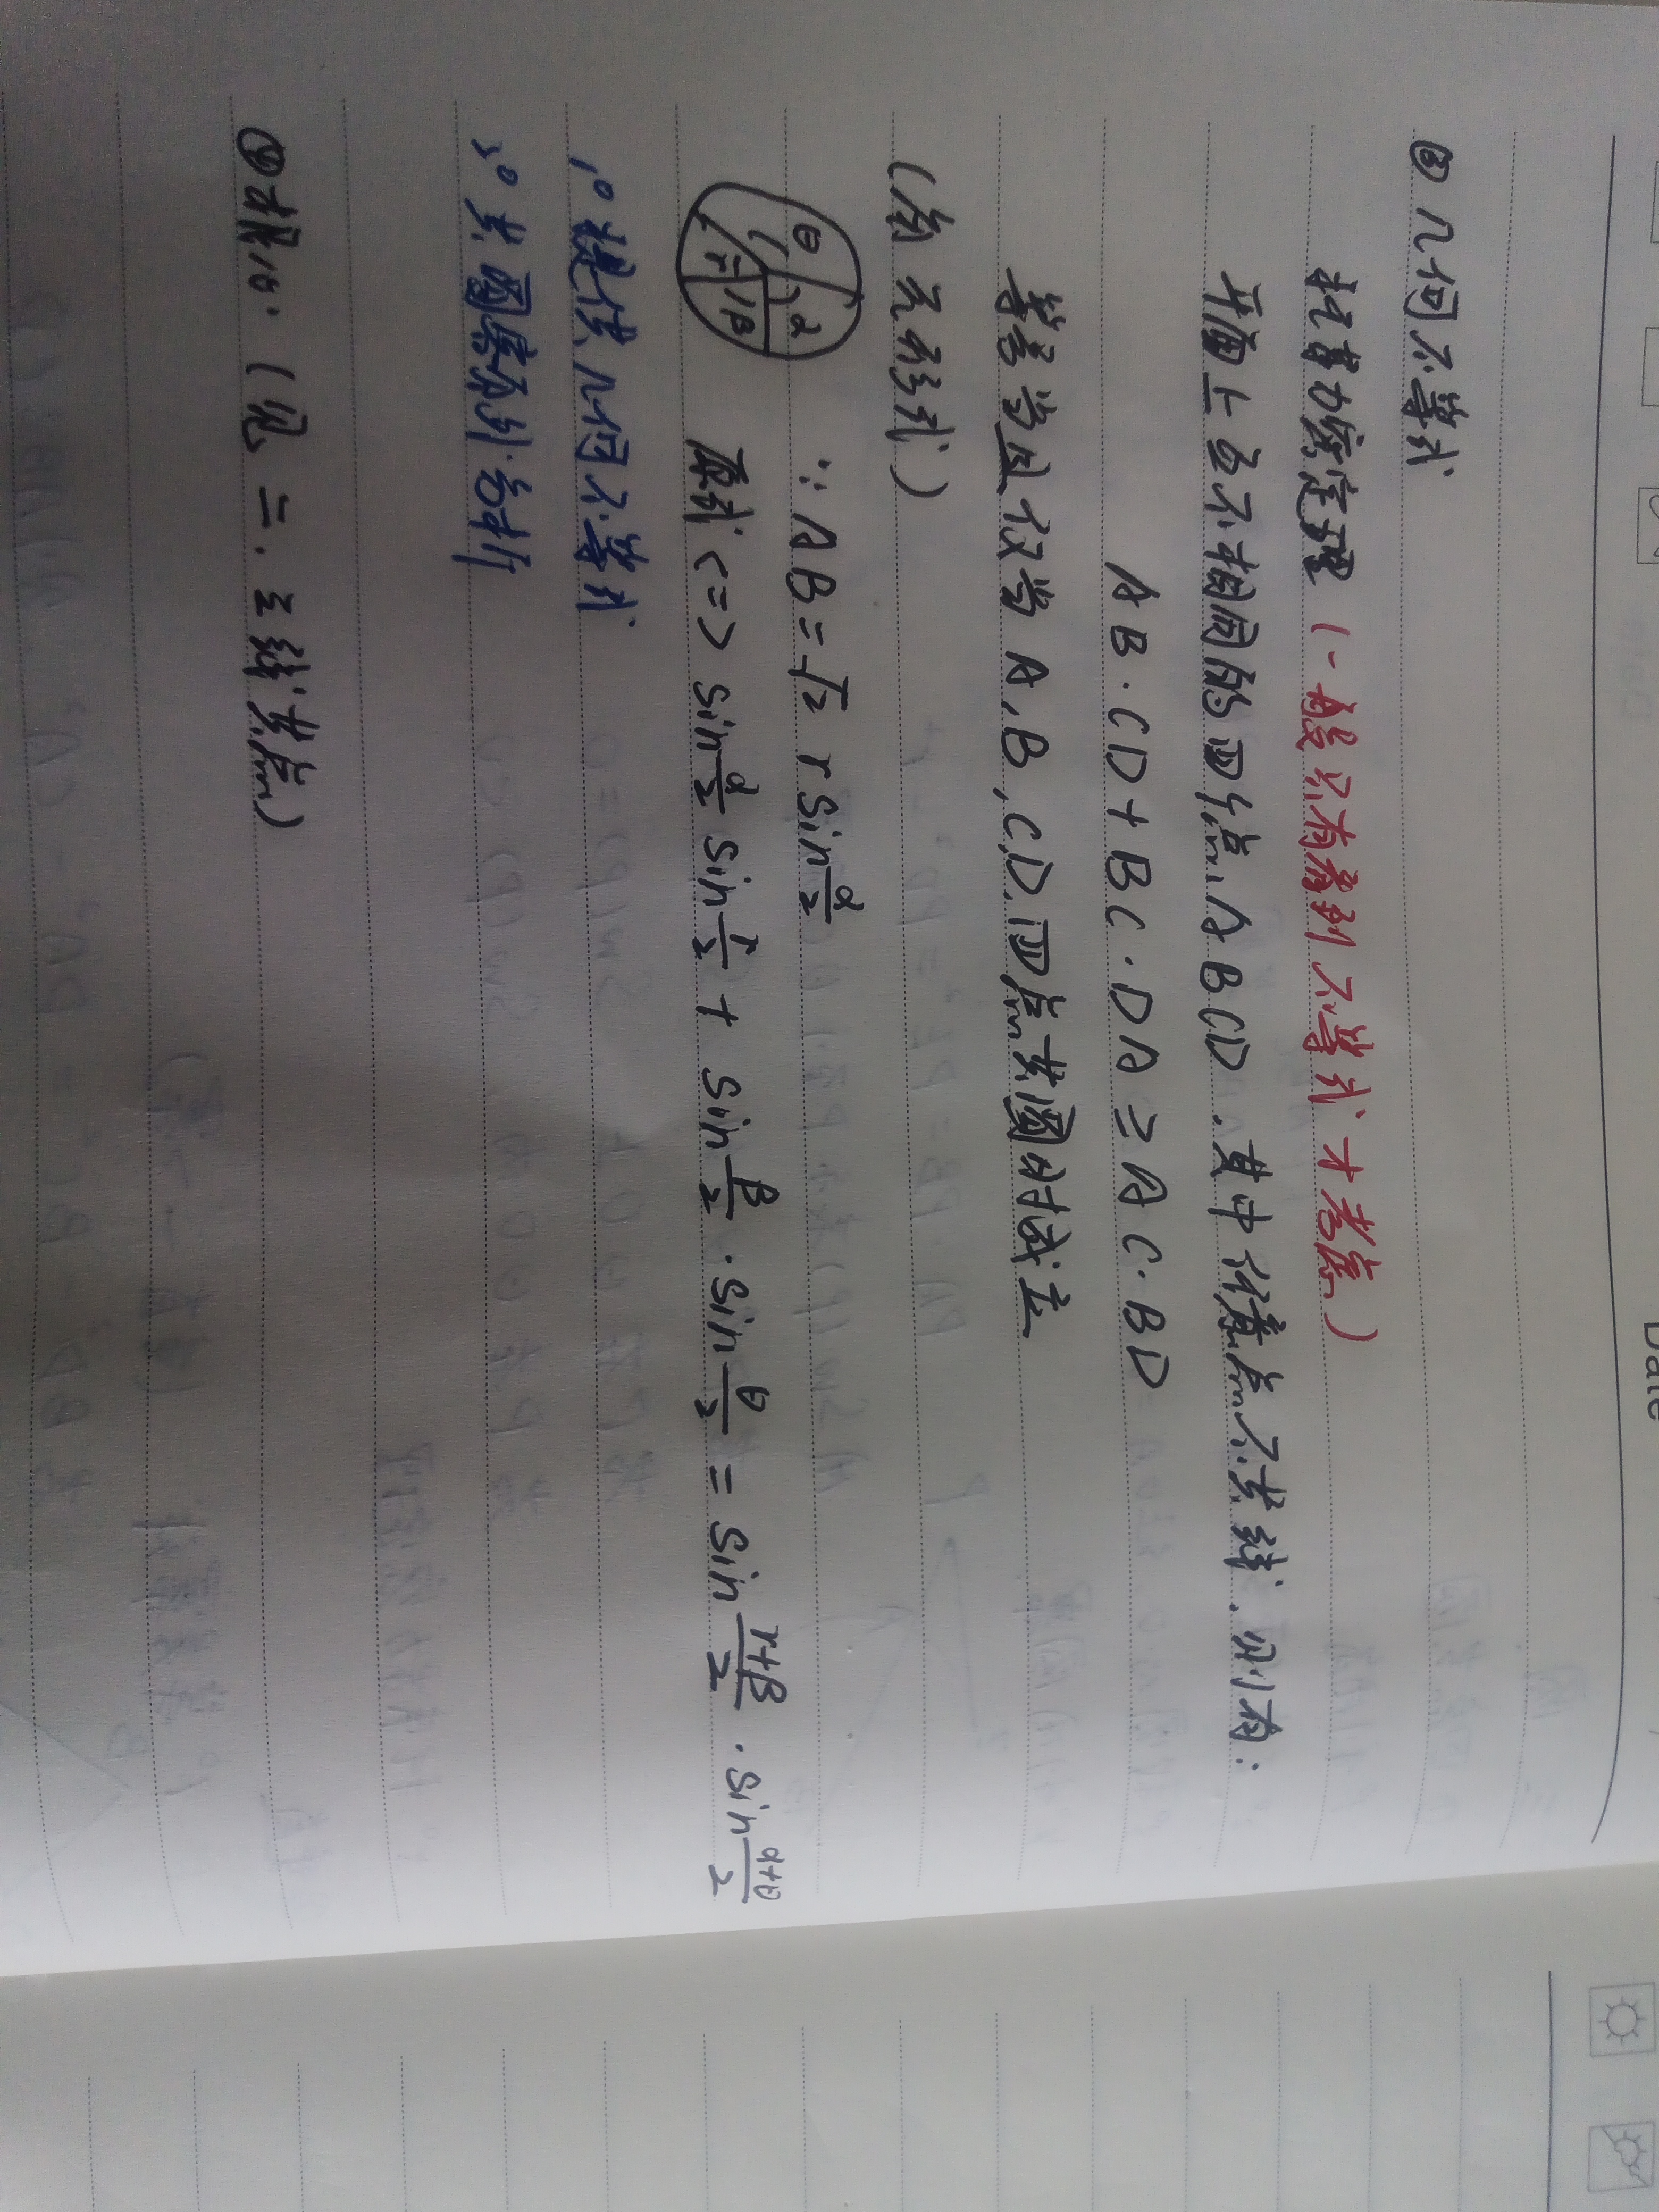 Date
③ 几何不等式
托勒密定理（一般只有看到不等式才考虑）
平面上各不相同的四个点A B C D，其中任意点不共线，则有：
AB·CD+BC·DA≥AC·BD
等号当且仅当A,B,C,D四点共圆时成立
（角元形式）
θ α r β
∵ AB=√2 r sin α/2
原式 <=> sin α/2 sin r/2 + sin β/2 · sin θ/2 = sin (r+β)/2 · sin (α+θ)/2
1° 提供几何不等式
2° 共圆席列分析
（见二.三线共点）